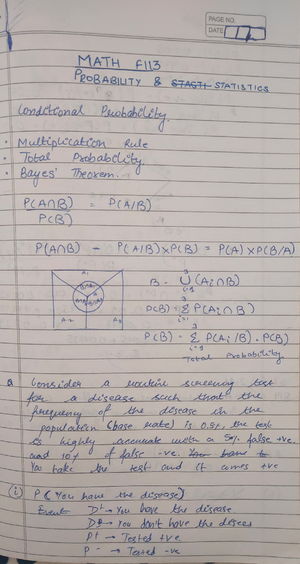 PAGE NO.
DATE
MATH F113
PROBABILITY & STATISTICS
Conditional Probability.
• Multiplication Rule
• Total Probability.
• Bayes' Theorem.
P(A∩B) = P(A/B)
P(B)
P(A∩B) = P(A/B)×P(B) = P(A)×P(B/A)
A1
A2
A3
B = ∪ (Ai∩B)
P(B) = Σ P(Ai∩B)
P(B) = Σ P(Ai/B) . P(B)
Total Probability
Q Consider a routine screening test
for a disease such that the
frequency of the disease in the
population (base rate) is 0.5%. the test
is highly accurate with a 5% false +ve.
and 10% of false -ve.
You take the test and it comes +ve
(i) P (You have the disease)
Event D+ → You have the disease
D → You don't have the disease
P+ → Tested +ve
P- → Tested -ve